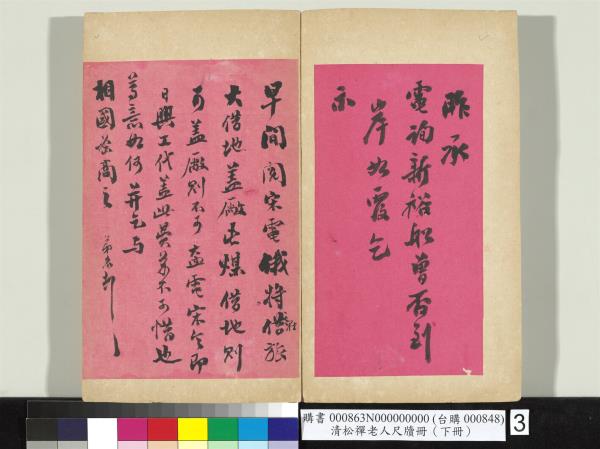 昨承
電詢新裕船曾否到
岸如覆乞
示
早間閱宋電俄將借旅
在
大借地蓋廠屯煤借地則
可蓋廠則不可盍電宋令即
日興工代蓋此費萬不可惜也
尊意如何并乞與
相國密商之 弟名
購書 000863N000000000 (台購 000848)
清松禪老人尺牘冊(下冊)
3